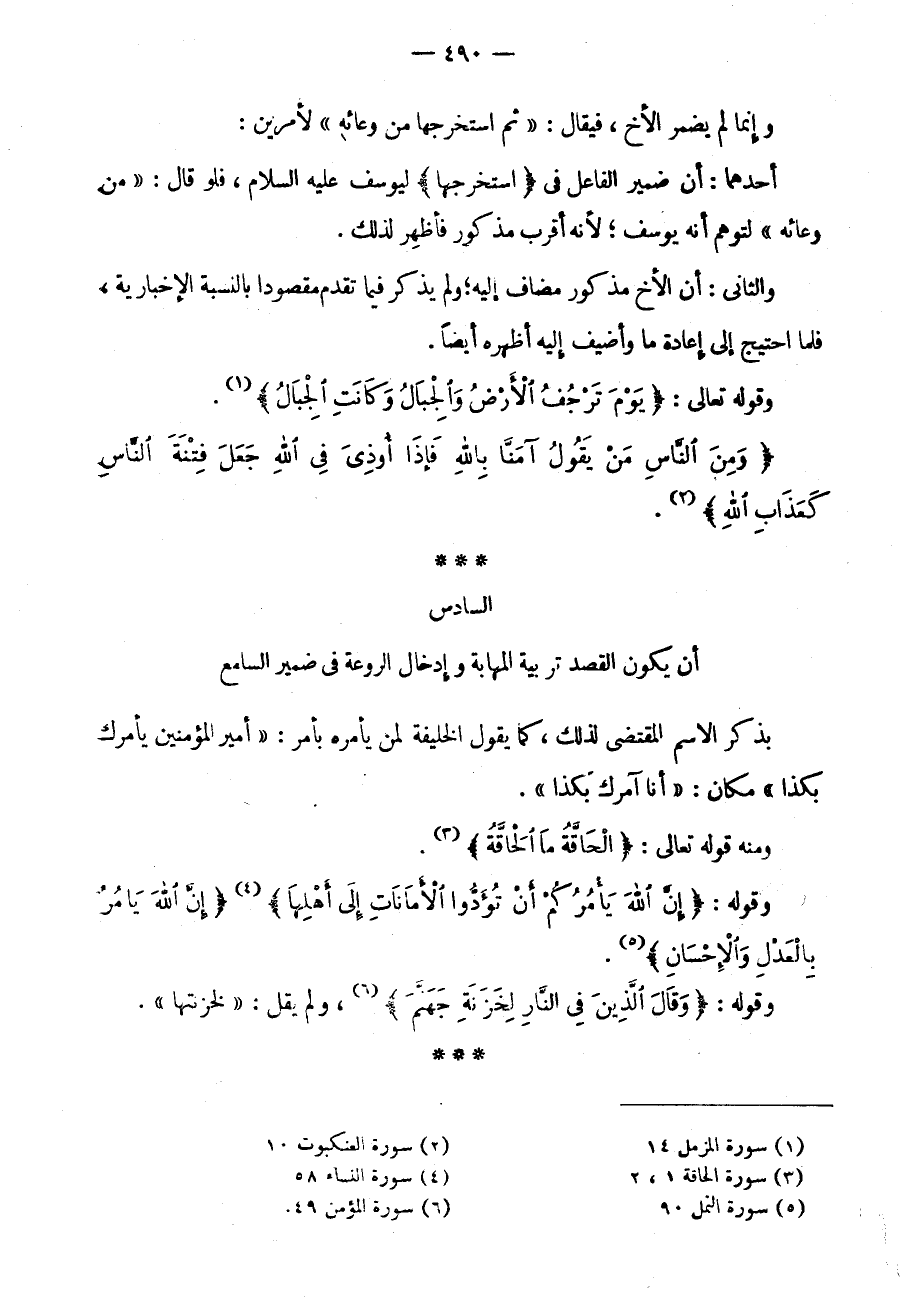 — ٤٩٠ —
وإنما لم يضمر الأخ ، فيقال : « ثم استخرجها من وعائه » لأمرين :
أحدهما : أن ضمير الفاعل فى ﴿ استخرجها ﴾ ليوسف عليه السلام ، فلو قال : « من
وعائه » لتوهم أنه يوسف ؛ لأنه أقرب مذكور فأظهِر لذلك .
والثانى : أن الأخ مذكور مضاف إليه؛ولم يذكر فيما تقدم مقصودا بالنسبة الإخبارية ،
فلما احتيج إلى إعادة ما وأضيف إليه أظهره أيضاً .
وقوله تعالى : ﴿ يَوْمَ تَرْجُفُ ٱلْأَرْضُ وَٱلْجِبَالُ وَكَانَتِ ٱلْجِبَالُ ﴾ (١) .
﴿ وَمِنَ ٱلنَّاسِ مَنْ يَقُولُ آمَنَّا بِاللهِ فَإِذَا أُوذِىَ فِى ٱللهِ جَعَلَ فِتْنَةَ ٱلنَّاسِ
كَعَذَابِ ٱللهِ ﴾ (٢) .
* * *
السادس
أن يكون القصد تربية المهابة وإدخال الروعة فى ضمير السامع
بذكر الاسم المقتضى لذلك ، كما يقول الخليفة لمن يأمره بأمر : « أمير المؤمنين يأمرك
بكذا » مكان : « أنا آمرك بكذا » .
ومنه قوله تعالى : ﴿ الْحَاقَّةُ مَا ٱلْحَاقَّةُ ﴾ (٣) .
وقوله : ﴿ إِنَّ ٱللهَ يَأْمُرُكُمْ أَنْ تُؤَدُّوا ٱلْأَمَانَاتِ إِلَى أَهْلِهَا ﴾ (٤) ﴿ إِنَّ ٱللهَ يَامُرُ
بِالْعَدْلِ وَٱلْإِحْسَانِ ﴾ (٥) .
وقوله : ﴿ وَقَالَ ٱلَّذِينَ فِى النَّارِ لِخَزَنَةِ جَهَنَّمَ ﴾ (٦) ، ولم يقل : « لخزنتها » .
* * *
(١) سورة المزمل ١٤ (٢) سورة العنكبوت ١٠
(٣) سورة الحاقة ١ ، ٢ (٤) سورة النساء ٥٨
(٥) سورة النمل ٩٠ (٦) سورة المؤمن ٤٩.